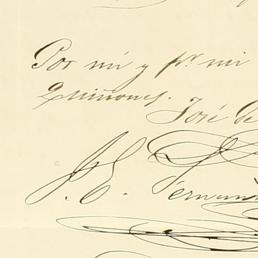 Por mí y pr. mi
Quiñones.
José G
J. E. Fernan